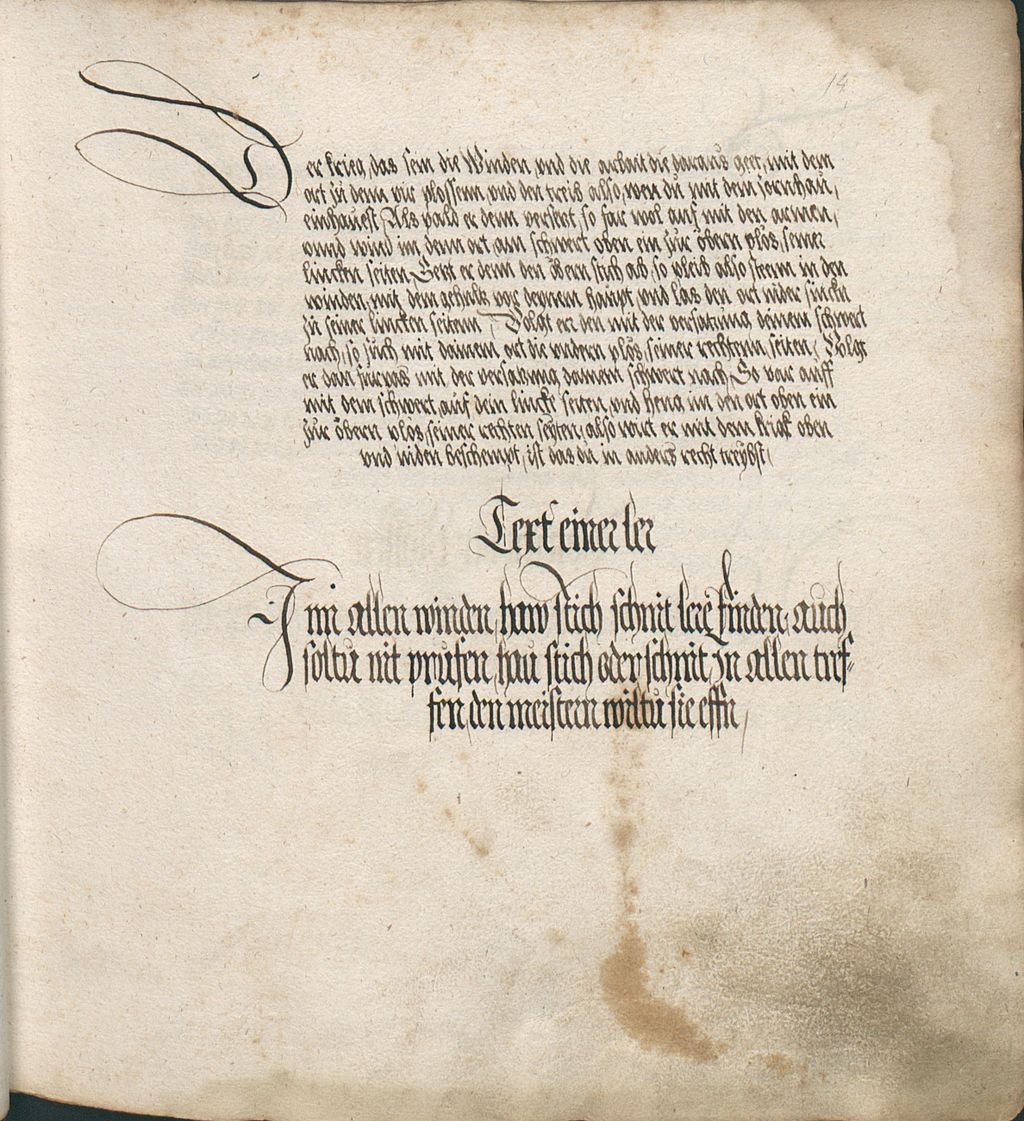 14
Der krieg, das sein die Winden, vnd die arbait die daraus geet, mit dem
ort zu denn vir plossenn, vnd den treib also, wen du mit dem zornhau,
einhauest Als pald er denn versetzt, so far wol auf mit den armen,
vnnd wind im denn ort am schwert oben ein zur obern plos, seiner
lincken seiten Setzt er denn den öbern stich ab, so pleib also steenn in den
winden, mit dem gehultz vor deynem haupt, vnd las den ort nider sincken
zu seiner lincken seitenn / Volgt er den mit der versatzung deinem schwert
nach, so such mit dainem ort die vndern plos, seiner rechtenn seiten / Volgt
er dan furpas mit der versatzung dainem schwert nach, So var auff
mit dem schwert, auf dein lincke seiten, vnd heng im den ort oben ein
zur öbern plos, seiner rechten seyten, also wirt er mit dem krieg oben
vnd niden beschempt, ist das du in anders recht treybst /
Text einer ler
Inn allen winden, haw stich schnit lere finden, auch
soltu nit prufen, hau stich oder schnit In allen tref-
fen, den meistern wiltu sie effn /